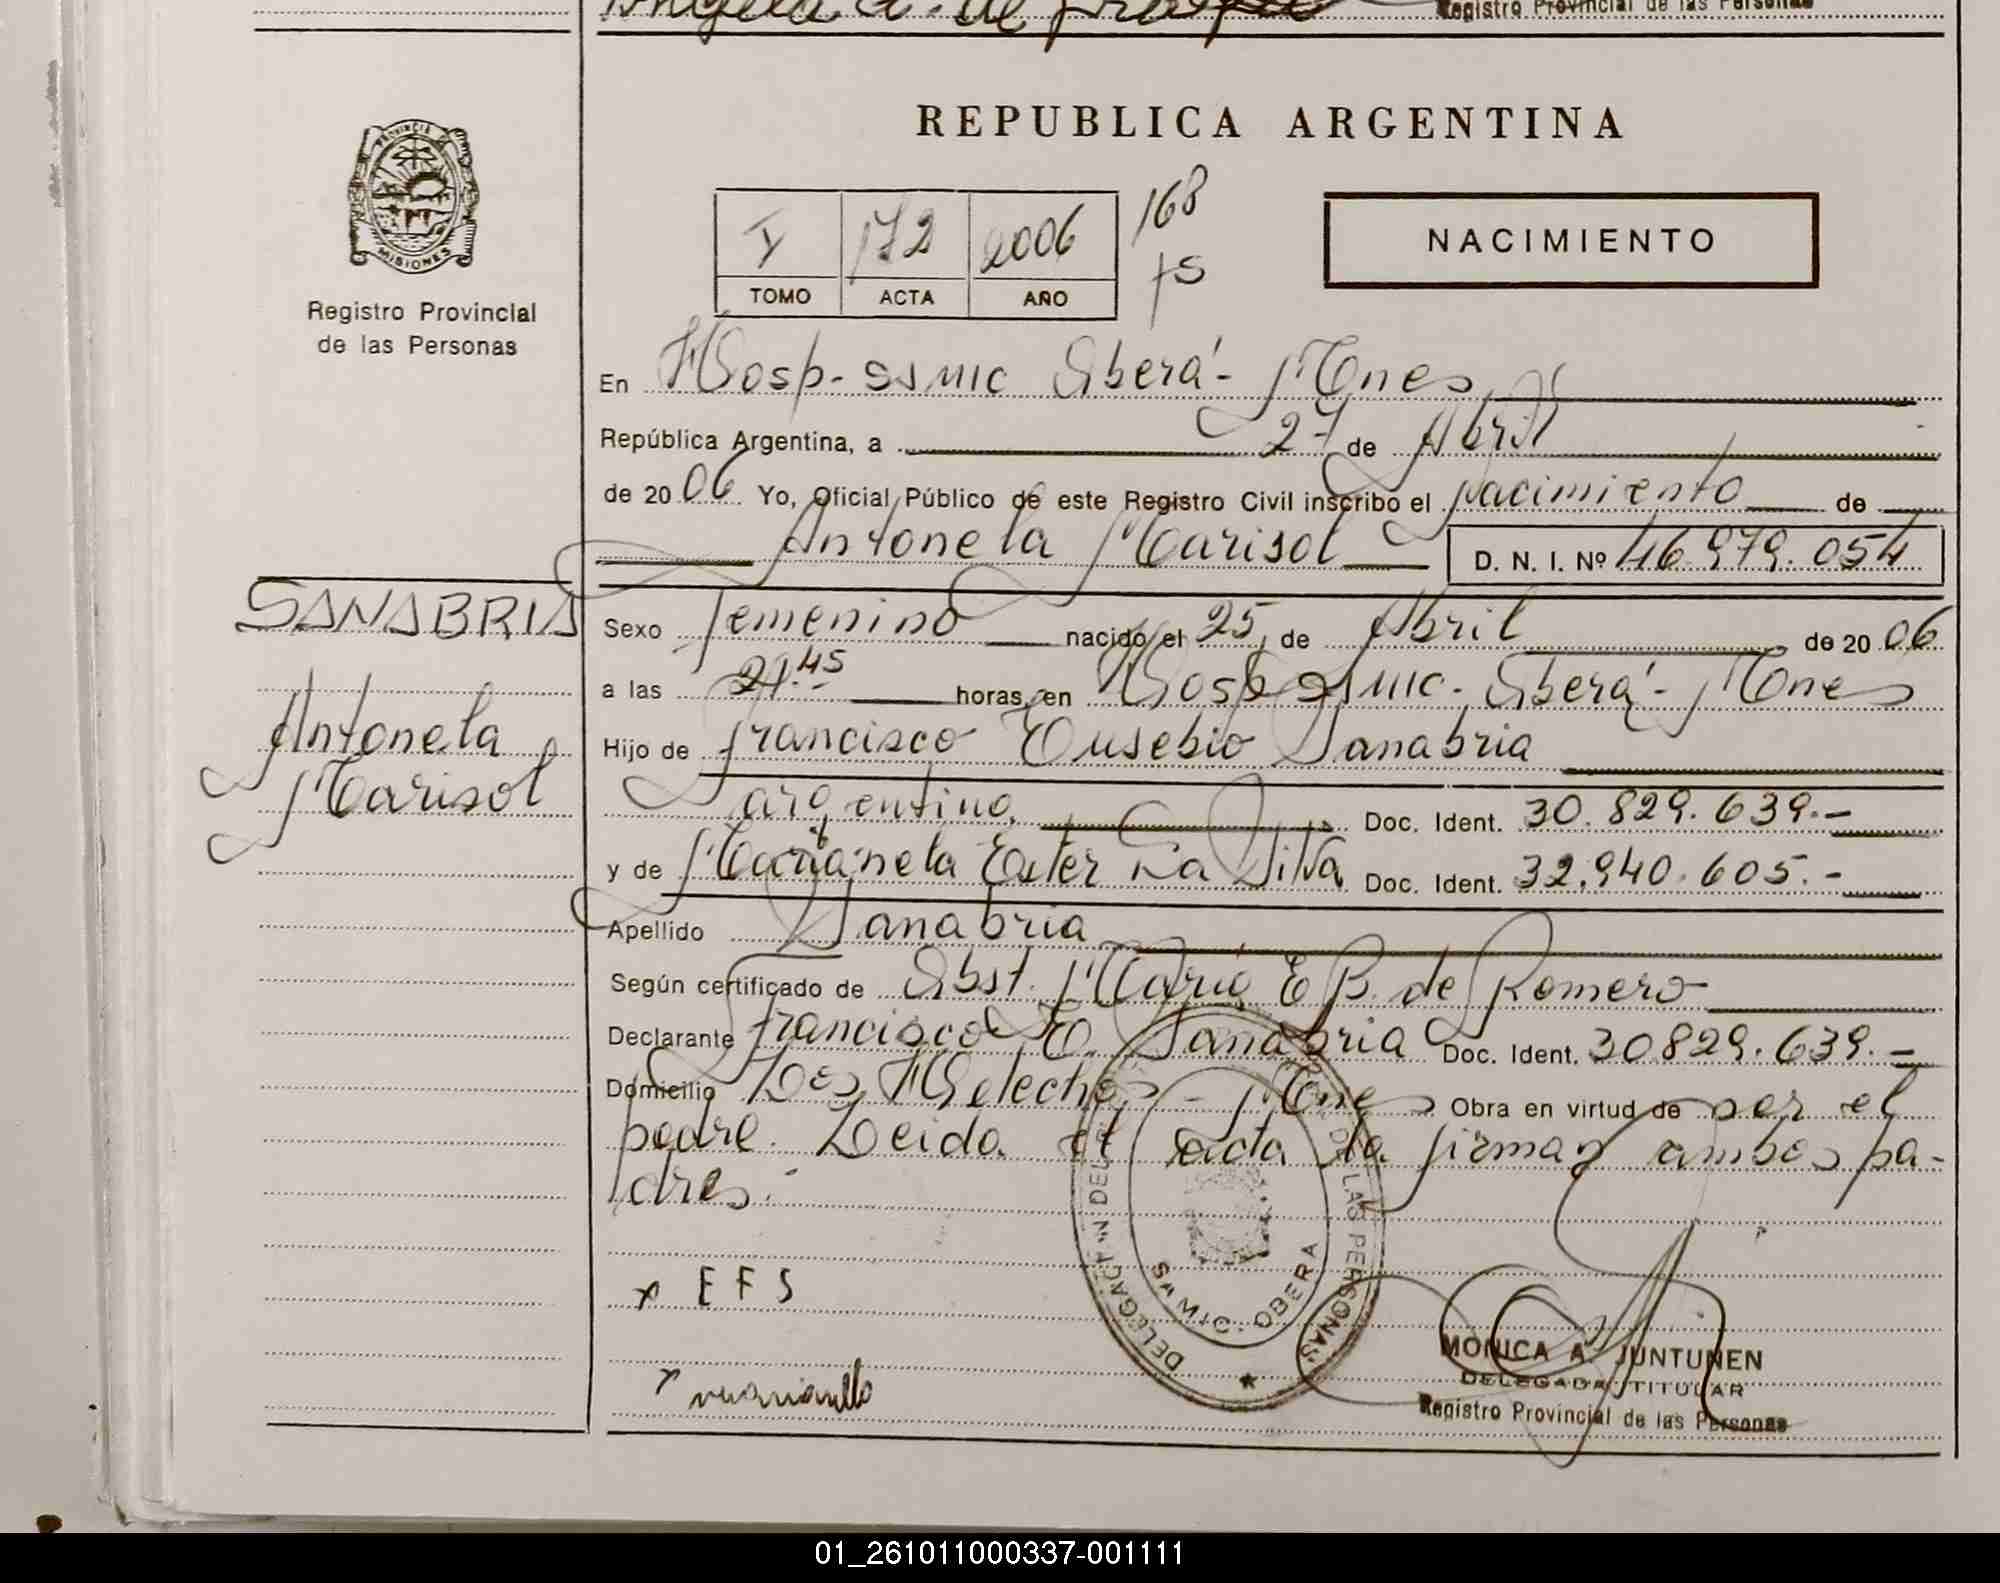 Angela
Registro Provincial de las Personas
REPUBLICA ARGENTINA
PROVINCIA DE
MISIONES
Registro Provincial
de las Personas
I 172 2006
TOMO ACTA AÑO
168
75
NACIMIENTO
En Hosp-SSMIC Oberá- Mnes
República Argentina, a 27 de Abril
de 2006 Yo, Oficial Público de este Registro Civil inscribo el nacimiento de
Antonela Marisol D. N. I. Nº 46.979.054
SANABRIA
Antonela
Marisol
Sexo femenino nacido el 25 de Abril de 2006
a las 21.45 horas, en Hosp SSMIC- Oberá- Mnes
Hijo de Francisco Eusebio Sanabria
argentino Doc. Ident. 30.829.639.-
y de Marianela Ester Da Silva Doc. Ident. 32.940.605.-
Apellido Sanabria
Según certificado de Obst. María E B. de Romero
Declarante Francisco E. Sanabria Doc. Ident. 30829.639.-
Domicilio Los Helechos - Mnes Obra en virtud de ser el
padre. Leida el acta la firman ambos pa-
dres.-
x E F S
x
DELEGACION DE LAS PERSONAS
SS.M.I.C. OBERA
MONICA A. JUNTUNEN
DELEGADA TITULAR
Registro Provincial de las Personas
01_261011000337-001111